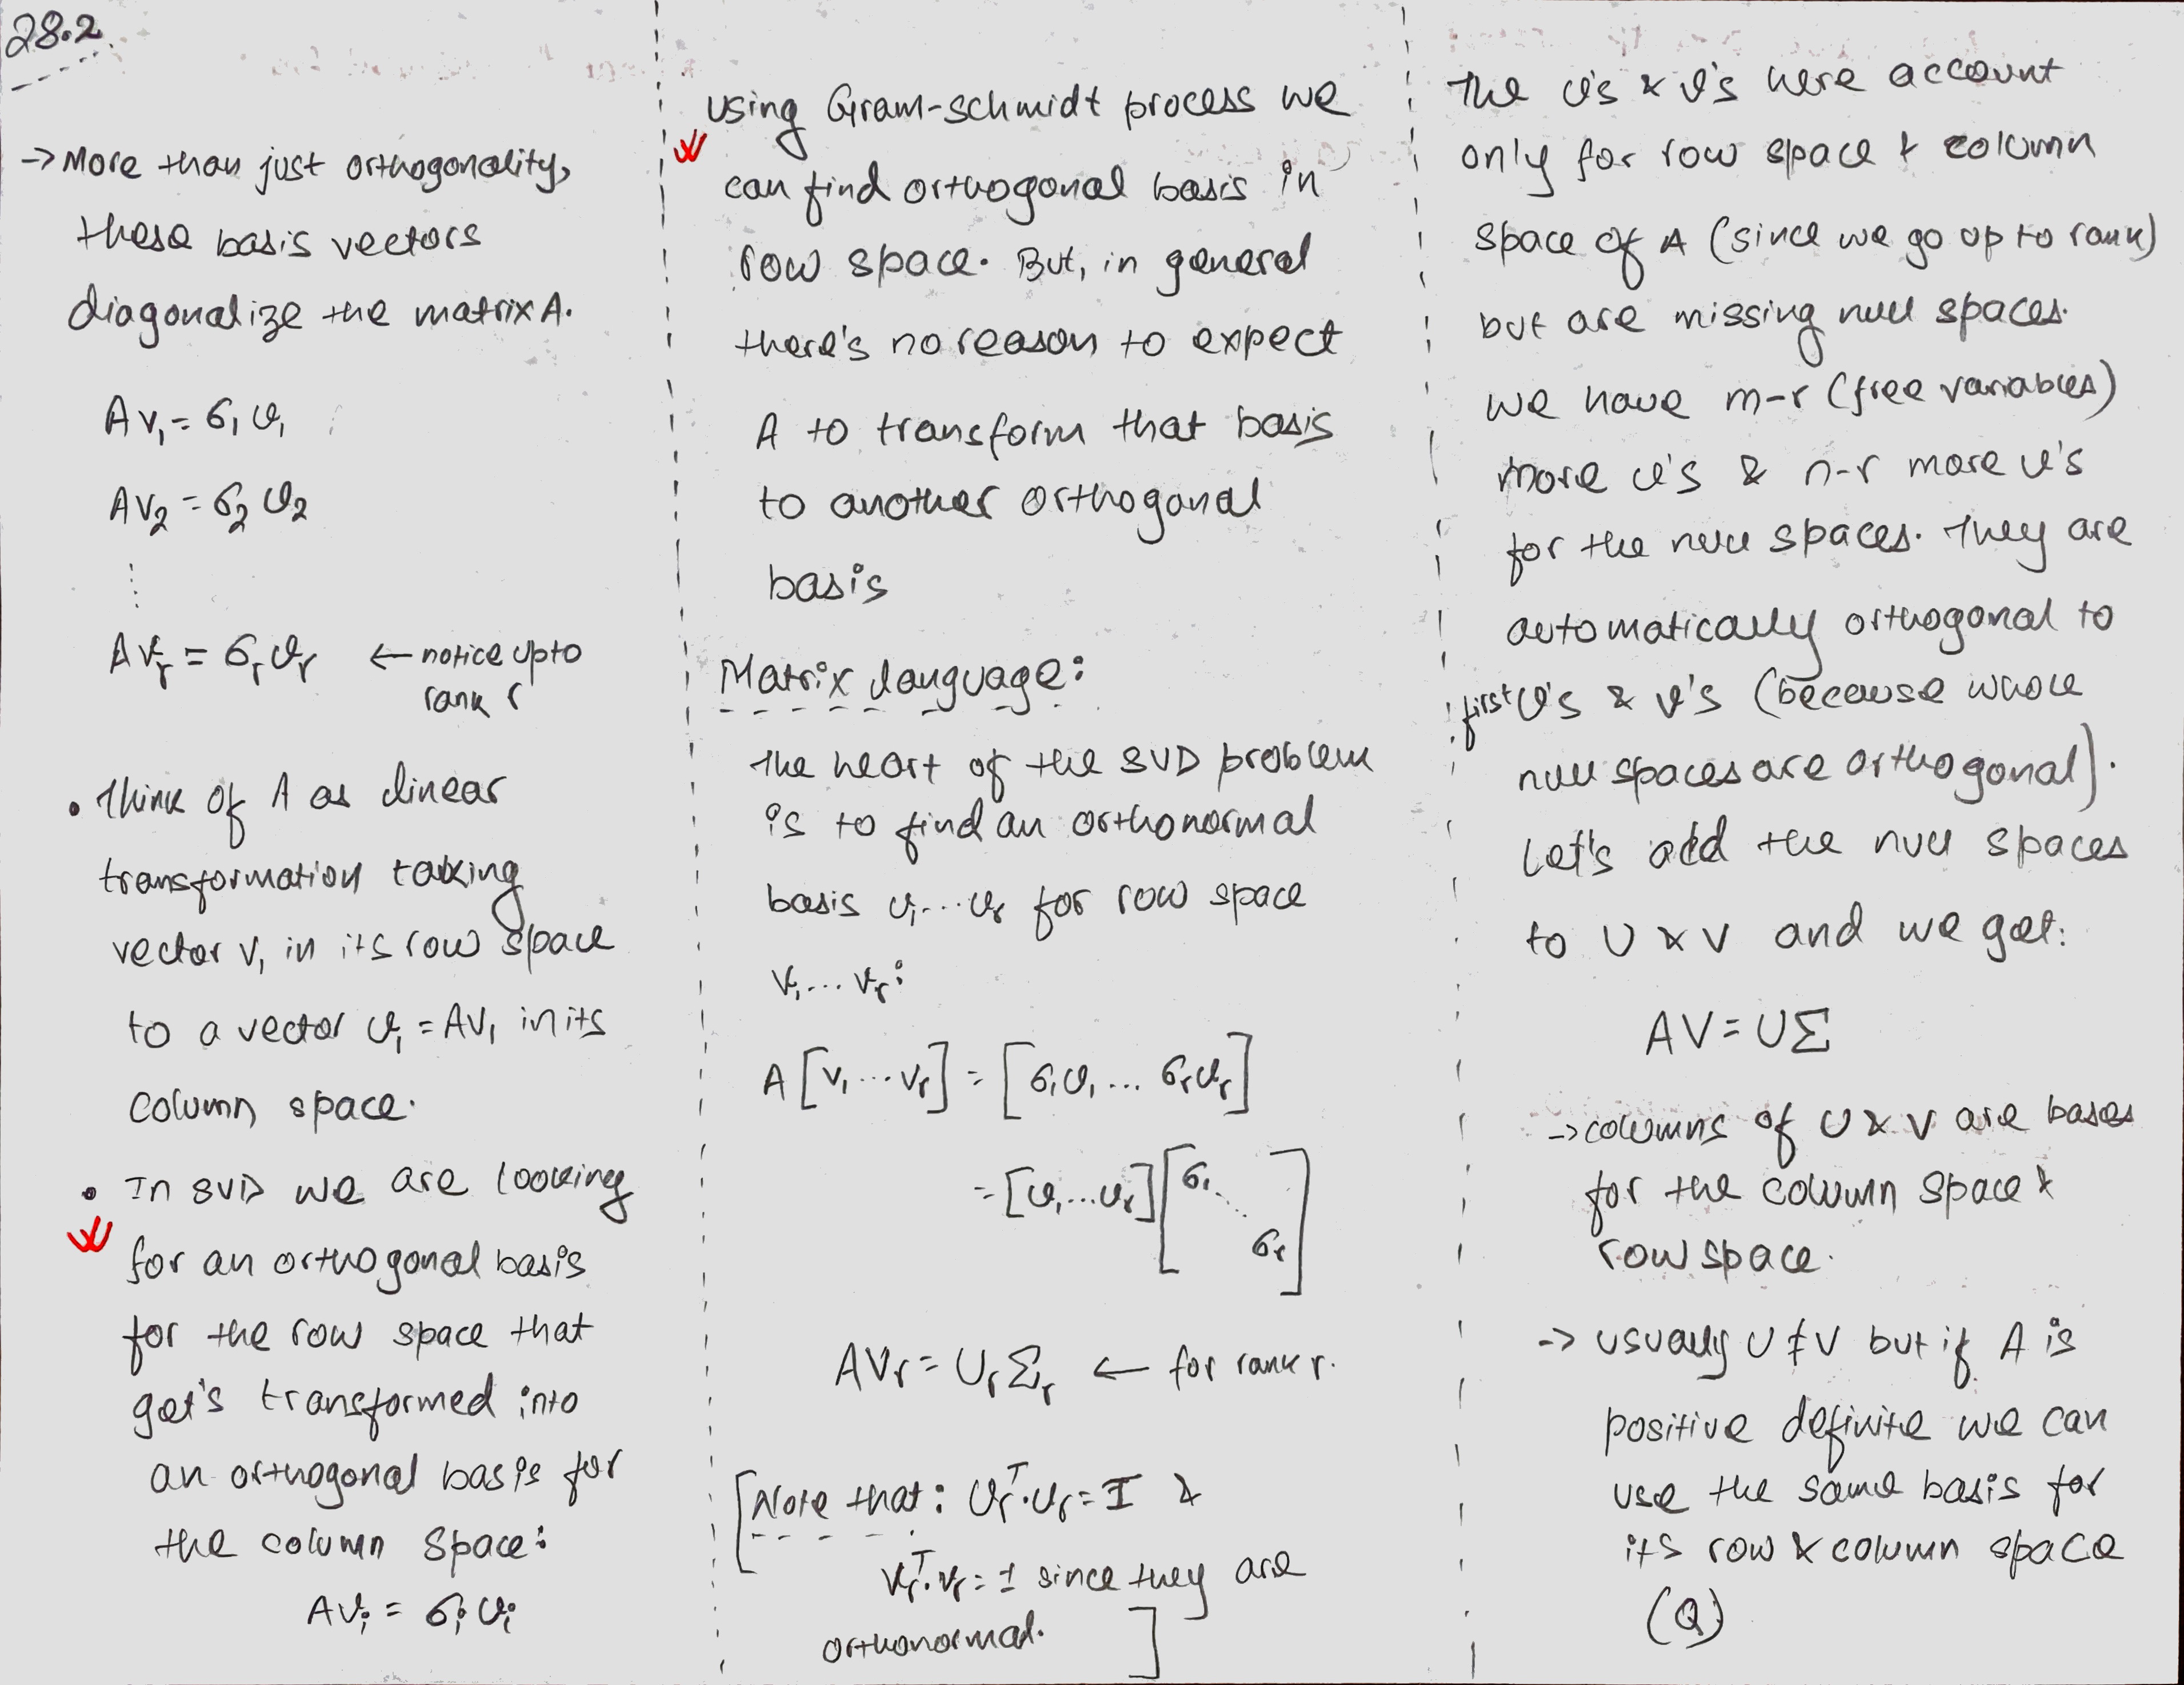 28.2
-> More than just orthogonality,
these basis vectors
diagonalize the matrix A.
Av₁ = σ₁u₁
Av₂ = σ₂u₂
⋮
Avᵣ = σᵣuᵣ ← notice upto
rank r
• Think of A as linear
transformation taking
vector v₁ in its row space
to a vector u₁ = Av₁ in its
column space.
• In SVD we are looking
for an orthogonal basis
for the row space that
get's transformed into
an orthogonal basis for
the column space:
Avᵢ = σᵢuᵢ
using Gram-schmidt process we
can find orthogonal basis in
row space. But, in general
there's no reason to expect
A to transform that basis
to another orthogonal
basis
Matrix language:
The heart of the SVD problem
is to find an orthonormal
basis u₁...uᵣ for row space
v₁...vᵣ:
A [v₁ ... vᵣ] = [σ₁u₁ ... σᵣuᵣ]
= [u₁...uᵣ] [σ₁ ⋱ σᵣ]
AVᵣ = UᵣΣᵣ ← for rank r.
[Note that: Uᵣᵀ.Uᵣ = I &
Vᵣᵀ.Vᵣ = I since they are
orthonormal. ]
The u's & v's here account
only for row space & column
space of A (since we go up to rank)
but are missing null spaces.
we have m-r (free variables)
more u's & n-r more v's
for the null spaces. They are
automatically orthogonal to
first u's & v's (because whole
null spaces are orthogonal).
Let's add the null spaces
to U & V and we get:
AV = UΣ
-> columns of U & V are bases
for the column space &
row space.
-> usually U ≠ V but if A is
positive definite we can
use the same basis for
its row & column space
(Q)